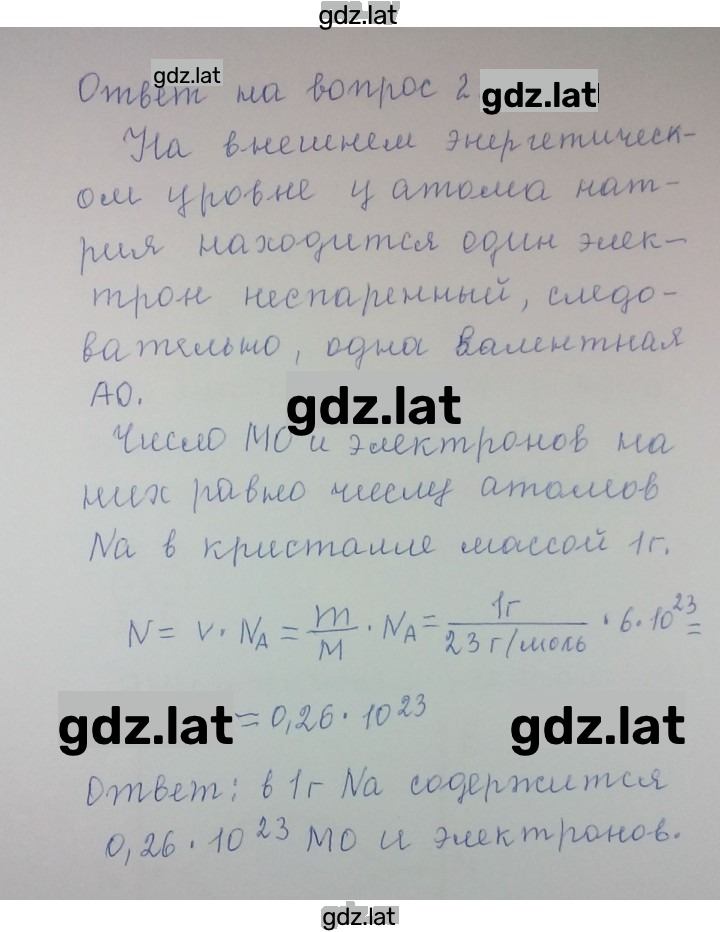 gdz.lat
Ответ на вопрос 2
gdz.lat gdz.lat
На внешнем энергетическ-
ом уровне у атома нат-
рия находится один элек-
трон неспаренный, следо-
вательно, одна валентная
АО.
gdz.lat
Число МО и электронов на
них равно числу атомов
Na в кристалле массой 1г.
N = ν · N_A = m/M · N_A = 1г/23 г/моль · 6 · 10²³ =
= 0,26 · 10²³
gdz.lat gdz.lat
Ответ: в 1г Na содержится
0,26 · 10²³ МО и электронов.
gdz.lat